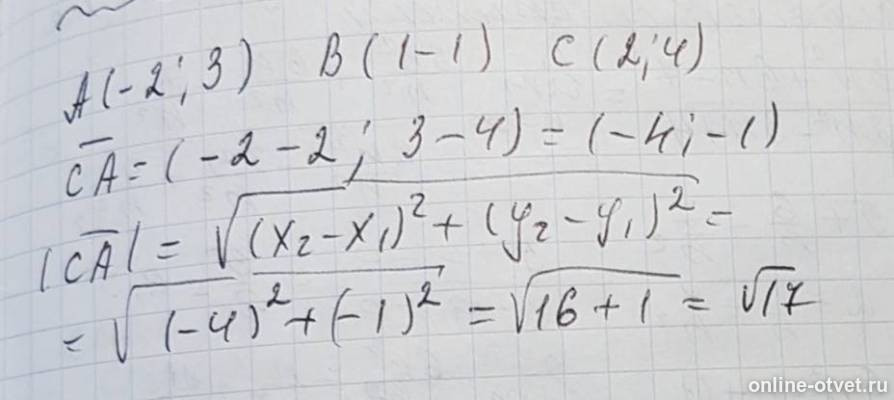 A(-2; 3) B(1-1) C(2;4)
C̅A̅ = (-2-2; 3-4) = (-4;-1)
|C̅A̅| = √(x₂-x₁)² + (y₂-y₁)² =
= √(-4)² + (-1)² = √16+1 = √17
online-otvet.ru